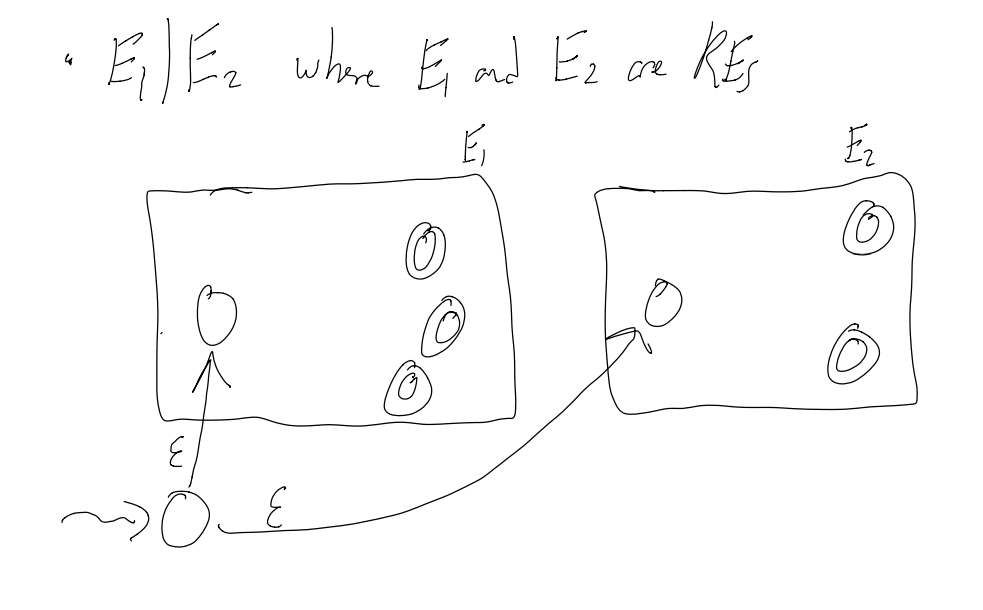 • E₁|E₂ where E₁ and E₂ are REs
E₁
E₂
ε
ε